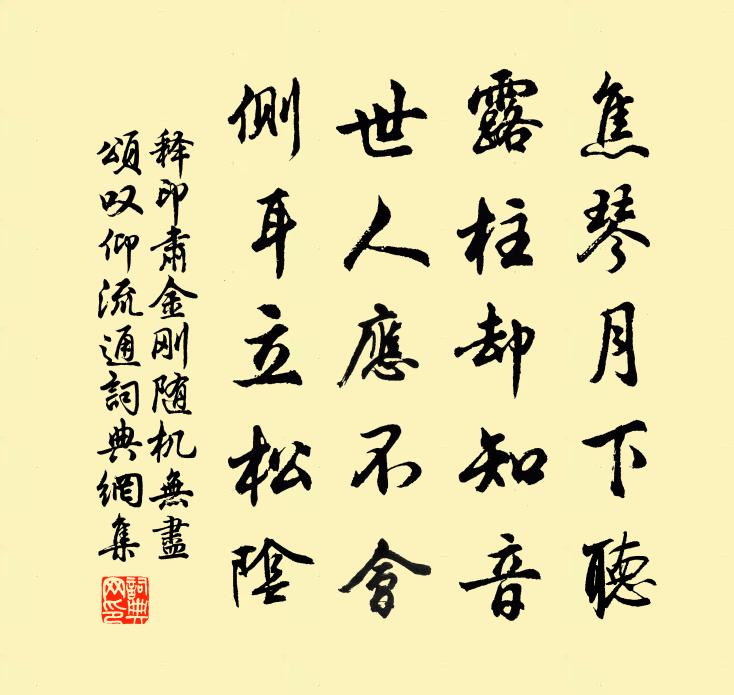 焦琴月下聽
露柱却知音
世人應不會
側耳立松陰
释印肅金刚随机無盡
頌叹仰流通詞典網集
詞典网印